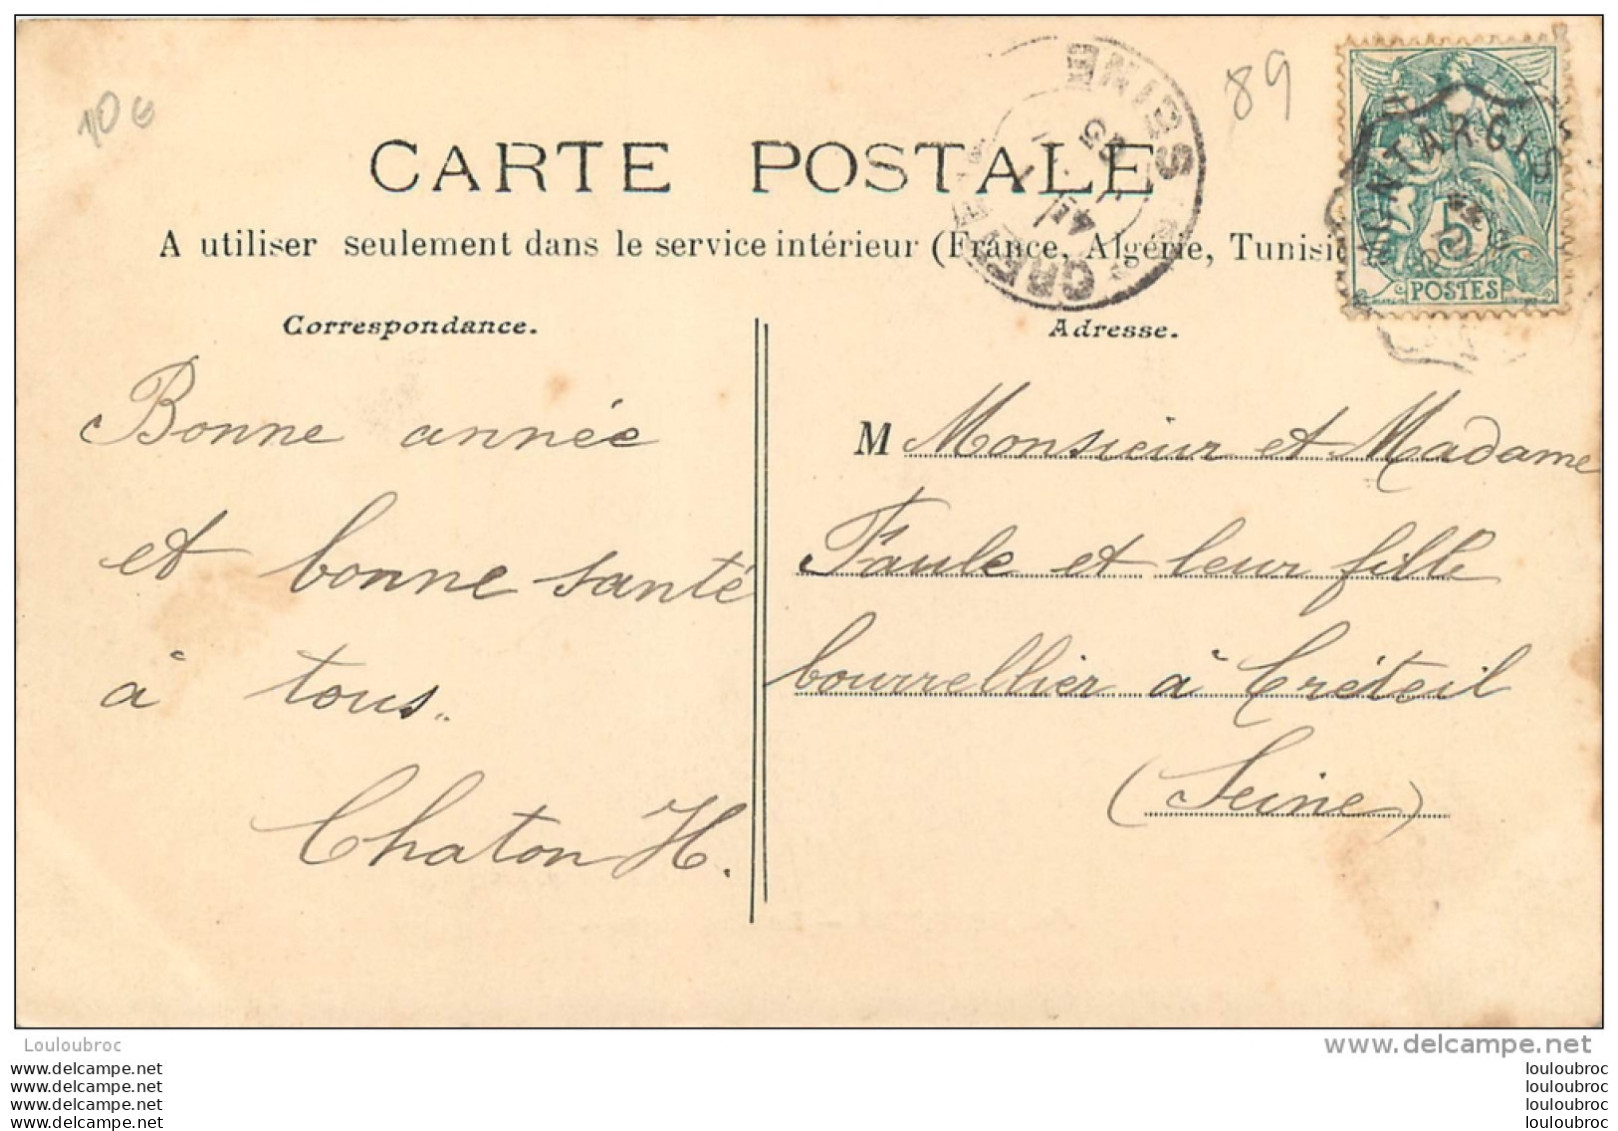 10€
89
CARTE POSTALE
A utiliser seulement dans le service intérieur (France, Algérie, Tunisie
SEINE
MONTARGIS
5
POSTES
Correspondance.
Adresse.
Bonne année
et bonne santé
à tous..
Chaton H.
M Monsieur et Madame
Faule et leur fille
bourrellier à Créteil
(Seine)
Louloubroc
www.delcampe.net
louloubroc louloubroc
louloubroc louloubroc
louloubroc louloubroc
louloubroc louloubroc